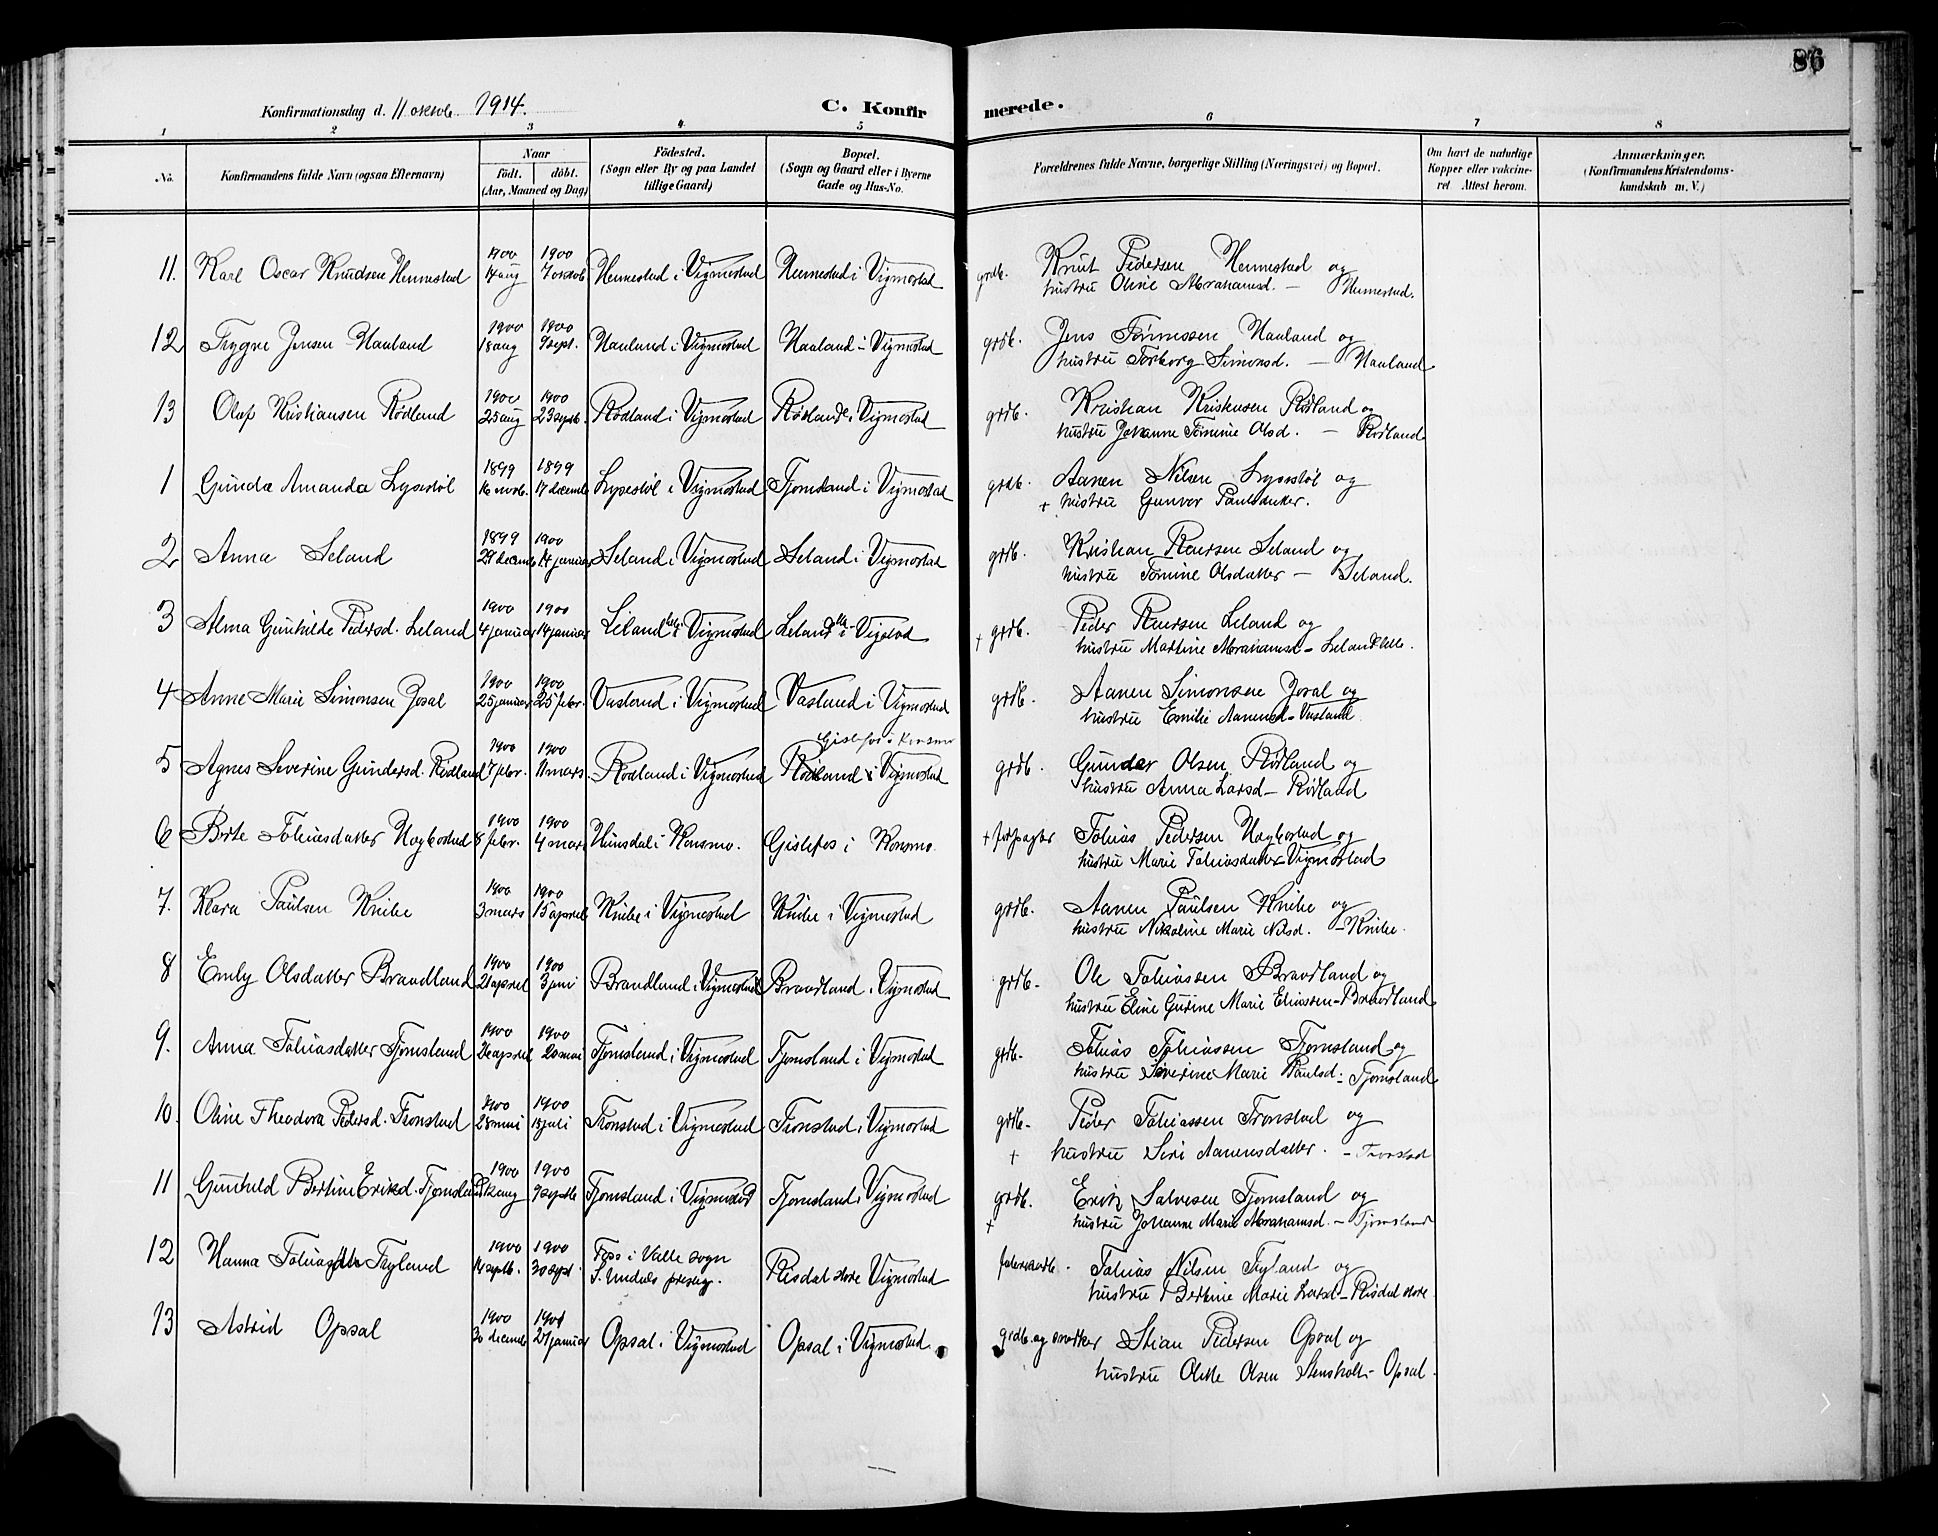 86
Konfirmationsdag d. 11 oktob. 1914.
C. Konfirmerede.
1 2 3 4 5 6 7 8
No.
Konfirmandens fulde Navn (ogsaa Efternavn)
Naar
født. døbt.
(Aar, Maaned og Dag)
Födested.
(Sogn eller By og paa Landet
tillige Gaard)
Bopæl.
(Sogn og Gaard eller i Byerne
Gade og Hus-No.
Forældrenes fulde Navne, borgerlige Stilling (Næringsvei) og Bopæl.
Om havt de naturlige
Kopper eller vakcine-
ret Attest herom.
Anmærkninger.
(Konfirmandens Kristendoms-
kundskab m. V.)
11. Karl Oscar Knudsen Hennestad 1900 14 aug 1900 7 oktob Hennestad i Vigmostad Hennestad i Vigmostad grdb. Knut Pedersen Hennestad og
hustru Oline Abrahamsd. — Hennestad.
12 Trygve Jensen Hauland 1900 18 aug 1900 9 sept. Hauland i Vigmostad Hauland i Vigmostad grdb. Jens Tønnessen Hauland og
hustru Torborg Simonsd. — Hauland
13 Olaf Kristiansen Rødland 1900 25 aug 1900 23 septb. Rødland i Vigmostad Rødland i Vigmostad grdb. Kristian Kristensen Rødland og
hustru Johanne Tomine Olsd. — Rødland
1 Gunda Amanda Lysestøl 1899 16 novb. 1899 17 decemb Lysestøl i Vigmostad Tjomsland i Vigmostad grdb. Aanen Nilsen Lysestøl og
+ hustru Gunvor Paulsdatter.
2 Anna Leland 1899 29 decemb 1900 14 januar Leland i Vigmostad Leland i Vigmostad grdb. Kristian Reiersen Leland og
hustru Tomine Olsdatter — Leland.
3 Alma Gunhilde Pedersd. Leland 1900 4 januar 1900 14 januar Leland i Vigmostad Leland i + grdb. Peder Reiersen Leland og
hustru Martine Abrahamsd —
4 Anne Marie Simonsen Josal 1900 25 januar 1900 25 febr. Vasland i Vigmostad Vasland i Vigmostad grdb. Aanen Simonsen Josal og
hustru Emilie Aanensd - Vasland
5 Agnes Severine Gundersd. Rødland 1900 7 febr. 1900 11 mars. Rødland i Vigmostad Gislefos i Konsmo Rødland i Vigmostad grdb. Gunder Olsen Rødland og
hustru Anna Larsd — Rødland
6 Berte Tobiasdatter Hægbostad 1900 8 febr. 1900 4 mars Hunsdal i Konsmo. Gislefos i Konsmo + forpagter Tobias Pedersen Hægbostad og
hustru Marie Tobiasdatter - Vigmostad
7. Klara Paulsen Knibe 1900 3 mars 1900 15 apreel Knibe i Vigmostad Knibe i Vigmostad grdb. Aanen Paulsen Knibe og
hustru Nikoline Marie Nilsd. — Knibe.
8 Emly Olsdatter Braadland 1900 21 apreel 1900 3 juni Braadland i Vigmostad Braadland i Vigmostad grdb - Ole Tobiassen Braadland og
hustru Eline Gurine Marie Eliassen - Braadland
9. Anna Tobiasdatter Tjomsland 1900 26 apreel 1900 20 mai Tjomsland i Vigmostad Tjomsland i Vigmostad grdb - Tobias Tobiassen Tjomsland og
hustru Severine Marie Paulsd - Tjomsland
10. Oline Theodora Pedersd. Tronstad 1900 28 mai 1900 15 juli Tronstad i Vigmostad Tronstad i Vigmostad grdb - Peder Tobiassen Tronstad og
+ hustru Siri Aanensdatter. — Tronstad
11 Gunhild Bertine Eriksd. Tjomsland 1900 aug 1900 9 septb Tjomsland i Vigmostad Tjomsland i Vigmostad grdb. Erik Salvesen Tjomsland og
+ hustru Johanne Marie Abrahamsd. — Tjomsland
12 Hanna Fryland 1900 14 septb. 1900 30 sept. Foss i Valle sogn
S. Undals prestegj. Risdal store Vigmostad Tobias Nilsen Fryland og
hustru Bertine Marie Larsd - Risdal store
13 Astrid Opsal 1900 30 decemb 1901 27 januar Opsal i Vigmostad Opsal i Vigmostad grdb. og snedker Stian Pedersen Opsal og
hustru Olette Olsen Stensholt - Opsal.